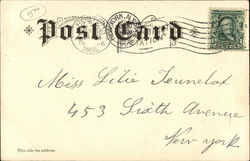 Post Card
Miss Lilie
453 Sixth Avenue
New York
This side for address.